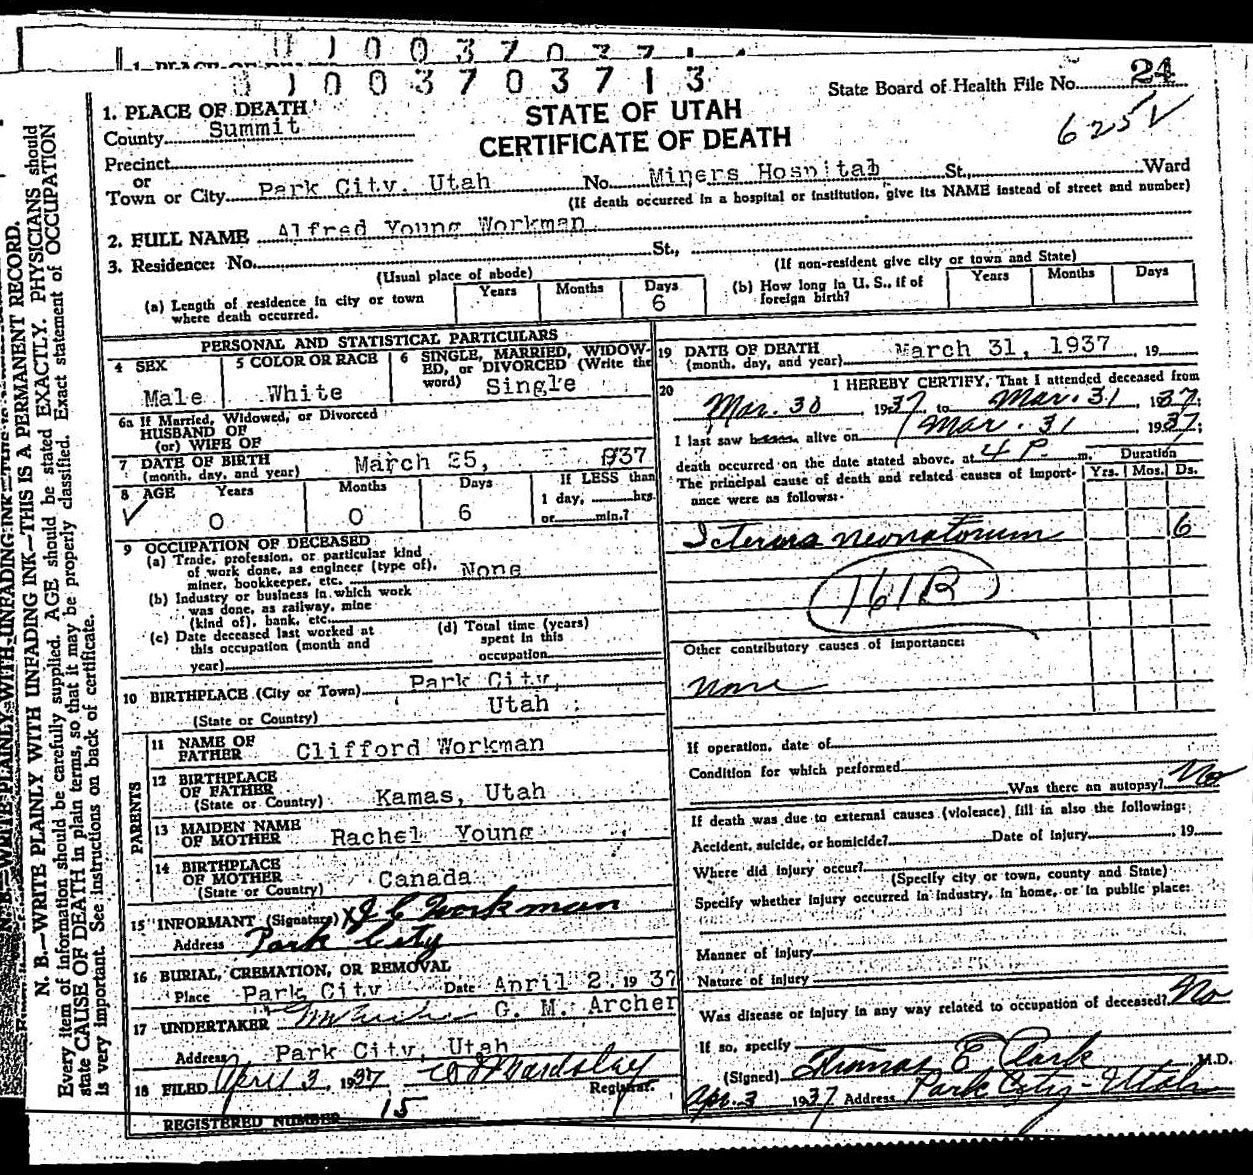 1 0 0 3 7 0 3 7 1
1 0 0 3 7 0 3 7 1 3
State Board of Health File No. 24
625
STATE OF UTAH
CERTIFICATE OF DEATH
1. PLACE OF DEATH
County Summit
Precinct
or
Town or City Park City, Utah No. Miners Hospital St., Ward
(If death occurred in a hospital or institution, give its NAME instead of street and number)
2. FULL NAME Alfred Young Workman
3. Residence: No. St.,
(Usual place of abode) (If non-resident give city or town and State)
(a) Length of residence in city or town where death occurred. Years Months Days 6
(b) How long in U. S., if of foreign birth? Years Months Days
PERSONAL AND STATISTICAL PARTICULARS
4 SEX Male
5 COLOR OR RACE White
6 SINGLE, MARRIED, WIDOWED, or DIVORCED (Write the word) Single
6a If Married, Widowed, or Divorced
HUSBAND OF
(or) WIFE OF
7 DATE OF BIRTH (month, day, and year) March 25, 1937
8 AGE Years 0 Months 0 Days 6 If LESS than 1 day, hrs. or min.?
9 OCCUPATION OF DECEASED
(a) Trade, profession, or particular kind of work done, as engineer (type of), miner, bookkeeper, etc. None
(b) Industry or business in which work was done, as railway, mine (kind of), bank, etc.
(c) Date deceased last worked at this occupation (month and year)
(d) Total time (years) spent in this occupation
10 BIRTHPLACE (City or Town) Park City,
(State or Country) Utah
PARENTS
11 NAME OF FATHER Clifford Workman
12 BIRTHPLACE OF FATHER (State or Country) Kamas, Utah
13 MAIDEN NAME OF MOTHER Rachel Young
14 BIRTHPLACE OF MOTHER (State or Country) Canada
15 INFORMANT (Signature) X J C Workman
Address Park City
16 BURIAL, CREMATION, OR REMOVAL
Place Park City Date April 2, 1937
17 UNDERTAKER G. M. Archer
Address Park City, Utah
18 FILED April 3 1937 Registrar.
REGISTERED NUMBER 15
19 DATE OF DEATH (month, day, and year) March 31, 1937, 19
20 I HEREBY CERTIFY, That I attended deceased from
Mar. 30 1937 to Mar. 31 1937;
I last saw alive on Mar. 31 1937;
death occurred on the date stated above, at 4 P. m.
The principal cause of death and related causes of importance were as follows:
Duration
Yrs. Mos. Ds.
Icterus neonatorum 6
161B
Other contributory causes of importance:
None
If operation, date of
Condition for which performed
Was there an autopsy? No
If death was due to external causes (violence) fill in also the following:
Accident, suicide, or homicide? Date of injury , 19
Where did injury occur?
(Specify city or town, county and State)
Specify whether injury occurred in industry, in home, or in public place:
Manner of injury
Nature of injury
Was disease or injury in any way related to occupation of deceased? No
If so, specify
(Signed) Thomas E Clark M.D.
Apr. 3 1937 Address Park City - Utah
N. B.—WRITE PLAINLY WITH UNFADING INK—THIS IS A PERMANENT RECORD.
Every item of information should be carefully supplied. AGE should be stated EXACTLY. PHYSICIANS should
state CAUSE OF DEATH in plain terms, so that it may be properly classified. Exact statement of OCCUPATION
is very important. See instructions on back of certificate.